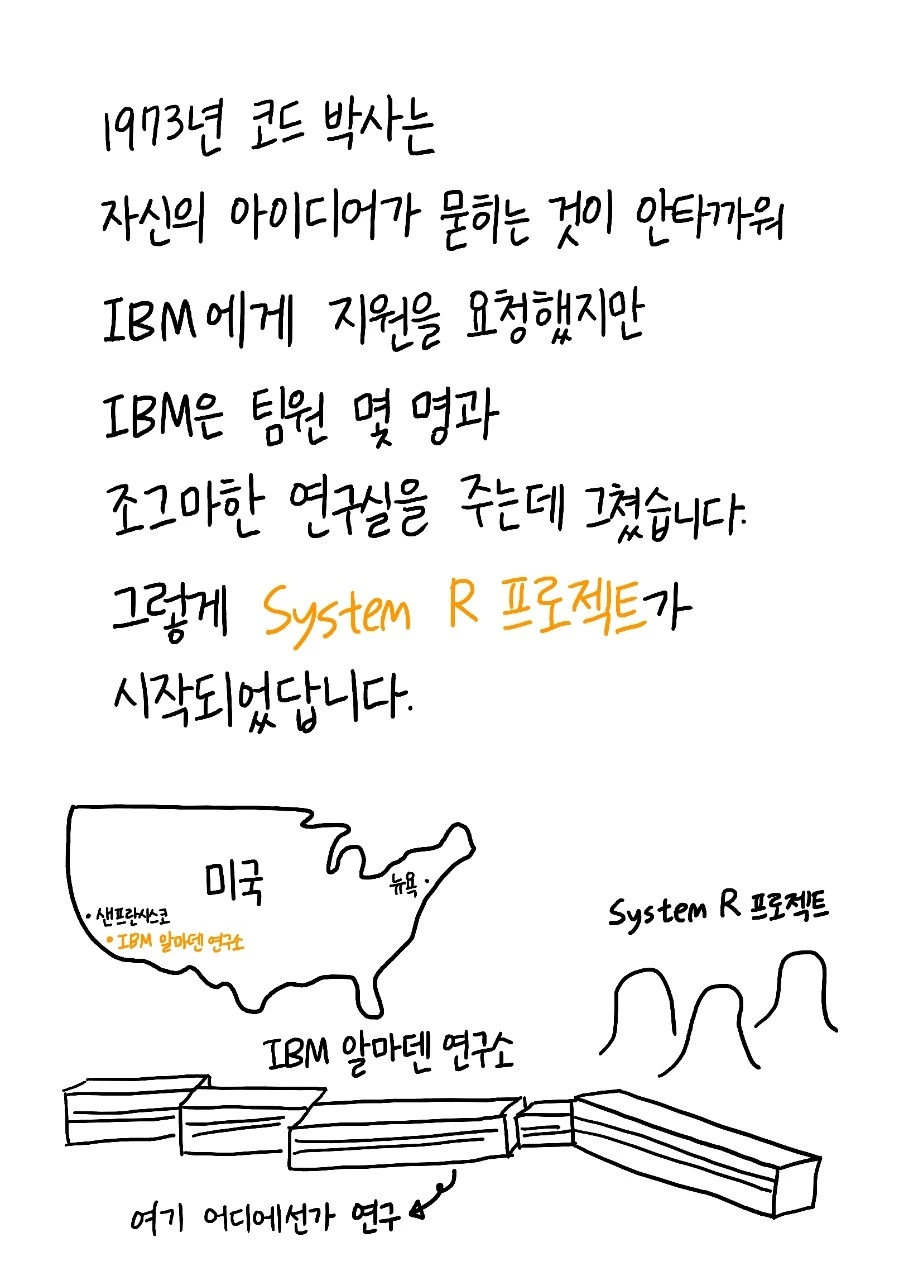 1973년 코드 박사는
자신의 아이디어가 묻히는 것이 안타까워
IBM에게 지원을 요청했지만
IBM은 팀원 몇 명과
조그마한 연구실을 주는데 그쳤습니다.
그렇게 System R 프로젝트가
시작되었답니다.
미국
뉴욕
샌프란시스코
IBM 알마덴 연구소
System R 프로젝트
IBM 알마덴 연구소
여기 어디에선가 연구